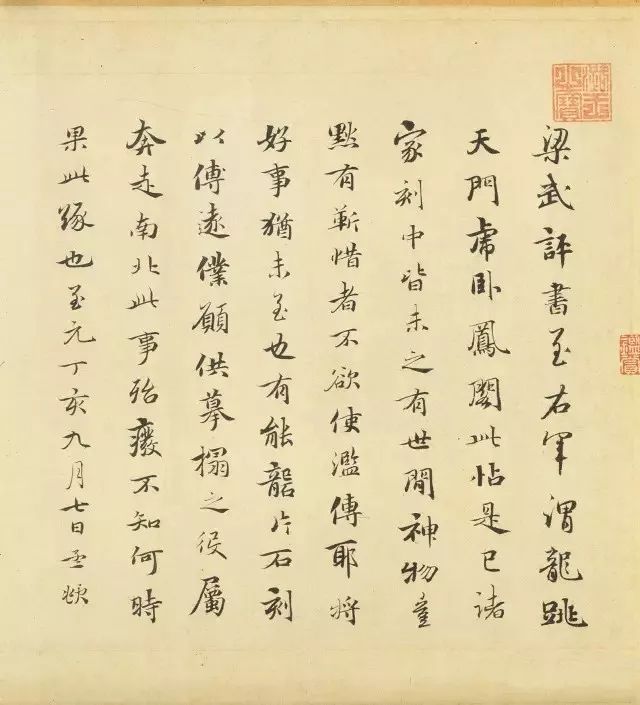 梁武評書至右軍謂龍跳
天門虎卧鳳閣此帖是已諸
家刻中皆未之有世間神物豈
默有靳惜者不欲使濫傳耶將
好事猶未至也有能龕片石刻
以傳遠僕願供摹搨之役屬
奔走南北此事殆廢不知何時
果此緣也至元丁亥九月七日孟頫